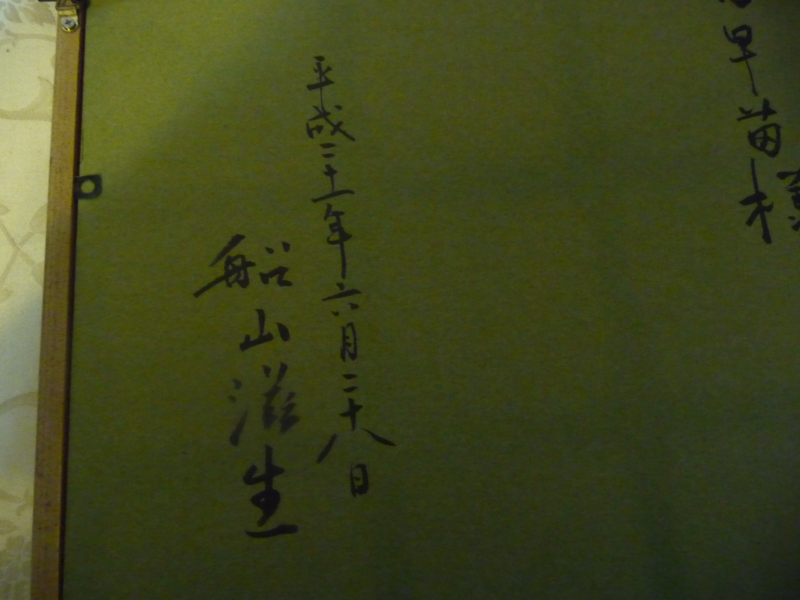 早苗様
平成二十一年六月二十八日
船山滋生